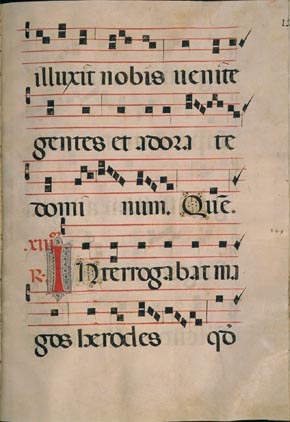 illuxit nobis uenite
gentes et adora te
domi num. Que.
XIII
R. Interrogabat ma
gos herodes qđ